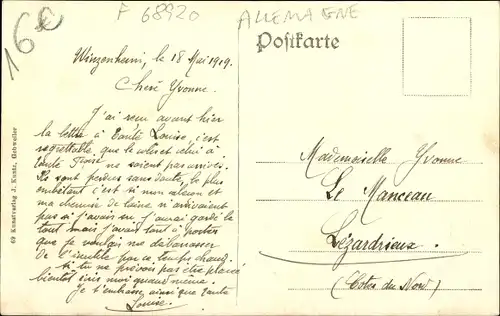 16€
F 68920
ALLEMAGNE
Postkarte
Winzenheim, le 18 Mai 1919.
Chère Yvonne.
J'ai reçu avant hier
la lettre à Tante Louise, c'est
regrettable, que le colis et celui à
tante ne soient pas arrivés.
Ils sont perdus sans doute, le plus
embêtant c'est si mon caleçon et
ma chemise de laine n'arrivaient
pas si j'avais su j'aurai gardé le
tout mais j'avais tout à porter
que je voulais me débarasser
de l'inutile par ce temps chaud.
si tu ne prévois pas être placée
bientôt écris moi quand même.
Je t'embrasse ainsi que tante
Louise.
Mademoiselle Yvonne
Le Manceau
Lézardrieux.
(Côtes du Nord)
69 Kunstverlag J. Kuntz, Gebweiler